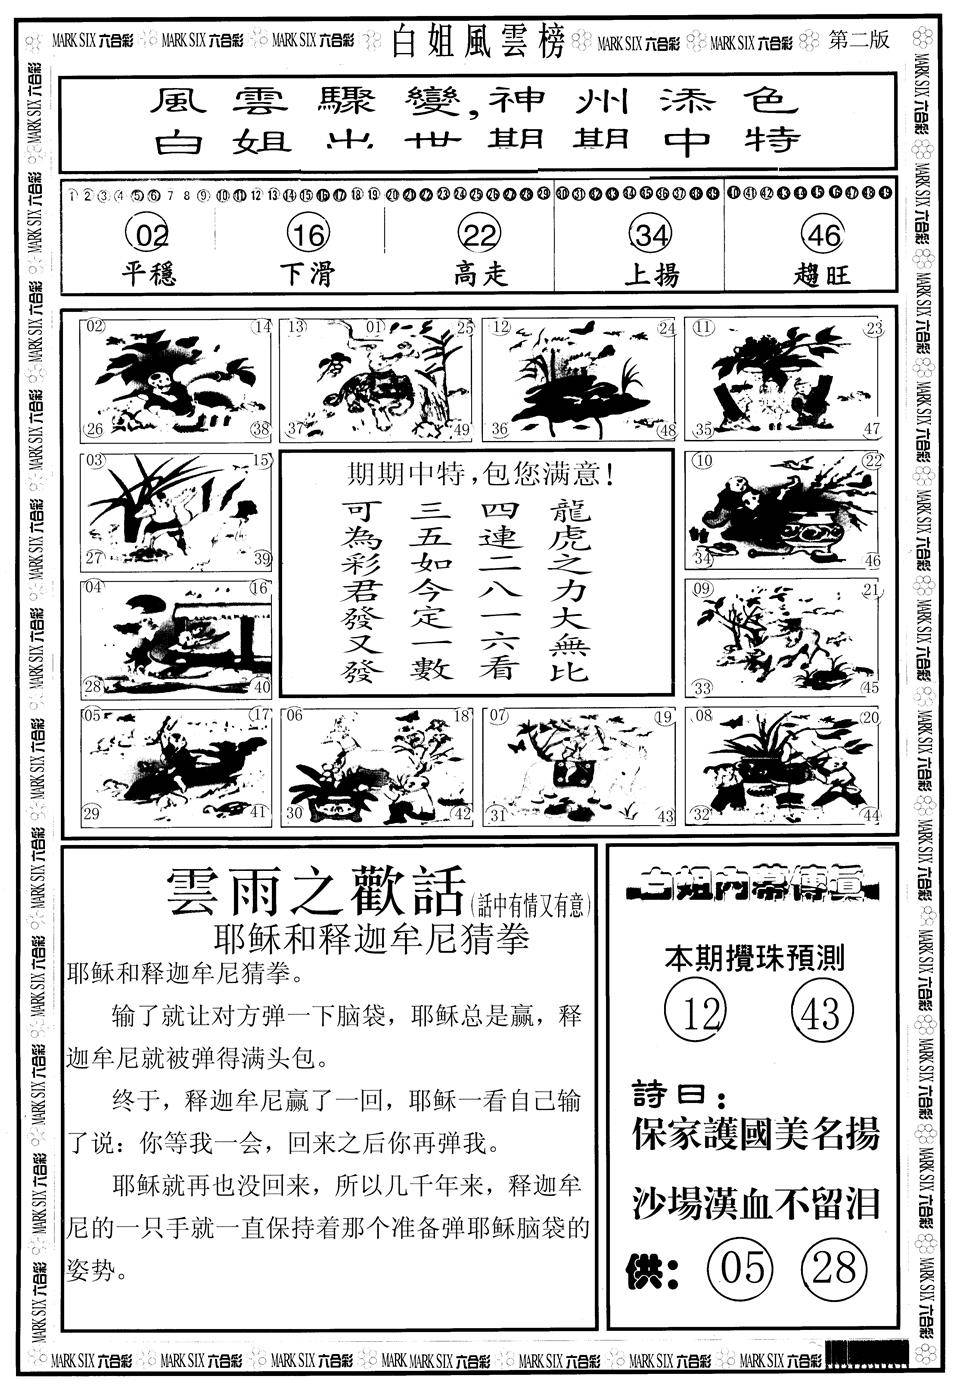 MARK SIX 六合彩 MARK SIX 六合彩 MARK SIX 六合彩 白姐風雲榜 MARK SIX 六合彩 MARK SIX 六合彩 第二版
風雲驟變,神州添色
白姐出世期期中特
1 2 3 4 5 6 7 8 9 10 11 12 13 14 15 16 17 18 19 20 21 22 23 24 25 26 27 28 29 30 31 32 33 34 35 36 37 38 39 40 41 42 43 44 45 46 47 48 49
02 16 22 34 46
平穩 下滑 高走 上揚 趨旺
02 14 13 01 25 12 24 11 23
26 38 37 49 36 48 35 47
03 15
27 39
04 16
28 40
期期中特,包您满意!
龍虎之力大無比
四連二八一六看
三五如今定一數
可為彩君發又發
10 22
34 46
09 21
33 45
05 17 06 18 07 19 08 20
29 41 30 42 31 43 32 44
雲雨之歡話(話中有情又有意)
耶稣和释迦牟尼猜拳
耶稣和释迦牟尼猜拳。
输了就让对方弹一下脑袋，耶稣总是赢，释
迦牟尼就被弹得满头包。
终于，释迦牟尼赢了一回，耶稣一看自己输
了说：你等我一会，回来之后你再弹我。
耶稣就再也没回来，所以几千年来，释迦牟
尼的一只手就一直保持着那个准备弹耶稣脑袋的
姿势。
白姐内幕傳真
本期攪珠預測
12 43
詩曰：
保家護國美名揚
沙場漢血不留泪
供：05 28
MARK SIX 六合彩 MARK SIX 六合彩 MARK SIX 六合彩 MARK MARK SIX 六合彩 MARK SIX 六合彩 MARK SIX 六合彩 MARK SIX 六合彩